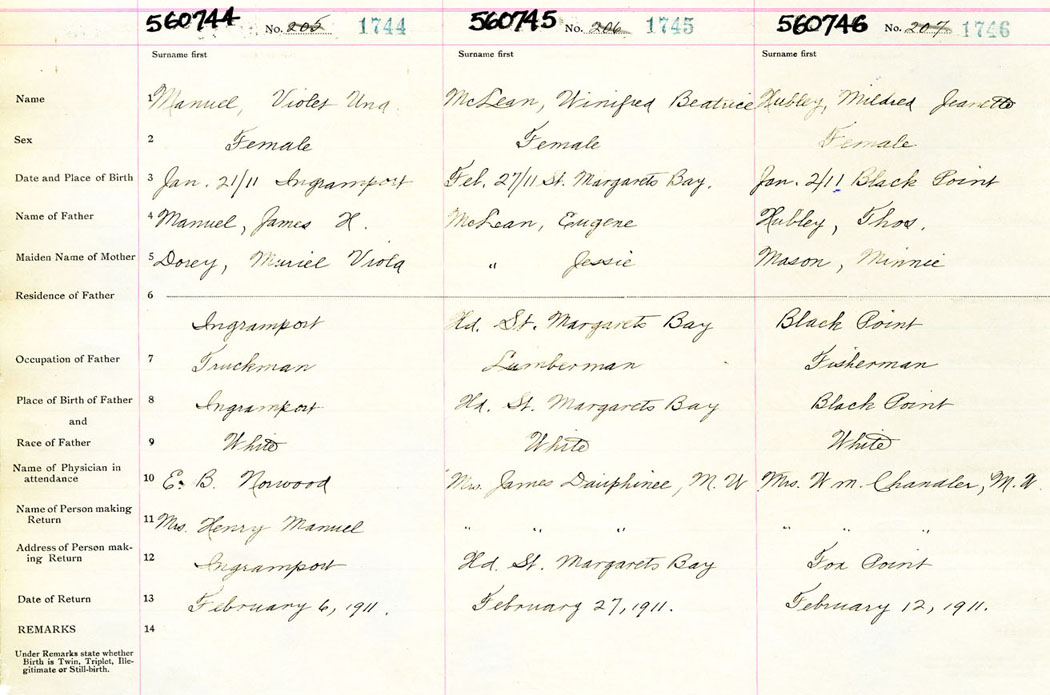 560744 No. 205 1744 560745 No. 206 1745 560746 No. 207 1746
Surname first Surname first Surname first
Name 1 Manuel, Violet Una. McLean, Winifred Beatrice Hubley, Mildred Jeanette
Sex 2 Female Female Female
Date and Place of Birth 3 Jan. 21/11 Ingramport Feb. 27/11 St. Margarets Bay. Jan. 2/11 Black Point
Name of Father 4 Manuel, James H. McLean, Eugene Hubley, Thos.
Maiden Name of Mother 5 Dorey, Muriel Viola " Jessie Mason, Minnie
Residence of Father 6
Ingramport Hd. St. Margarets Bay Black Point
Occupation of Father 7 Truckman Lumberman Fisherman
Place of Birth of Father 8 Ingramport Hd. St. Margarets Bay Black Point
and
Race of Father 9 White White White
Name of Physician in
attendance 10 E. B. Norwood Mrs. James Dauphinee, M. W Mrs. Wm. Chandler, M. W.
Name of Person making
Return 11 Mrs. Henry Manuel " " " " " "
Address of Person mak-
ing Return 12 Ingramport Hd. St. Margarets Bay Fox Point
Date of Return 13 February 6, 1911. February 27, 1911. February 12, 1911.
REMARKS 14
Under Remarks state whether
Birth is Twin, Triplet, Ille-
gitimate or Still-birth.